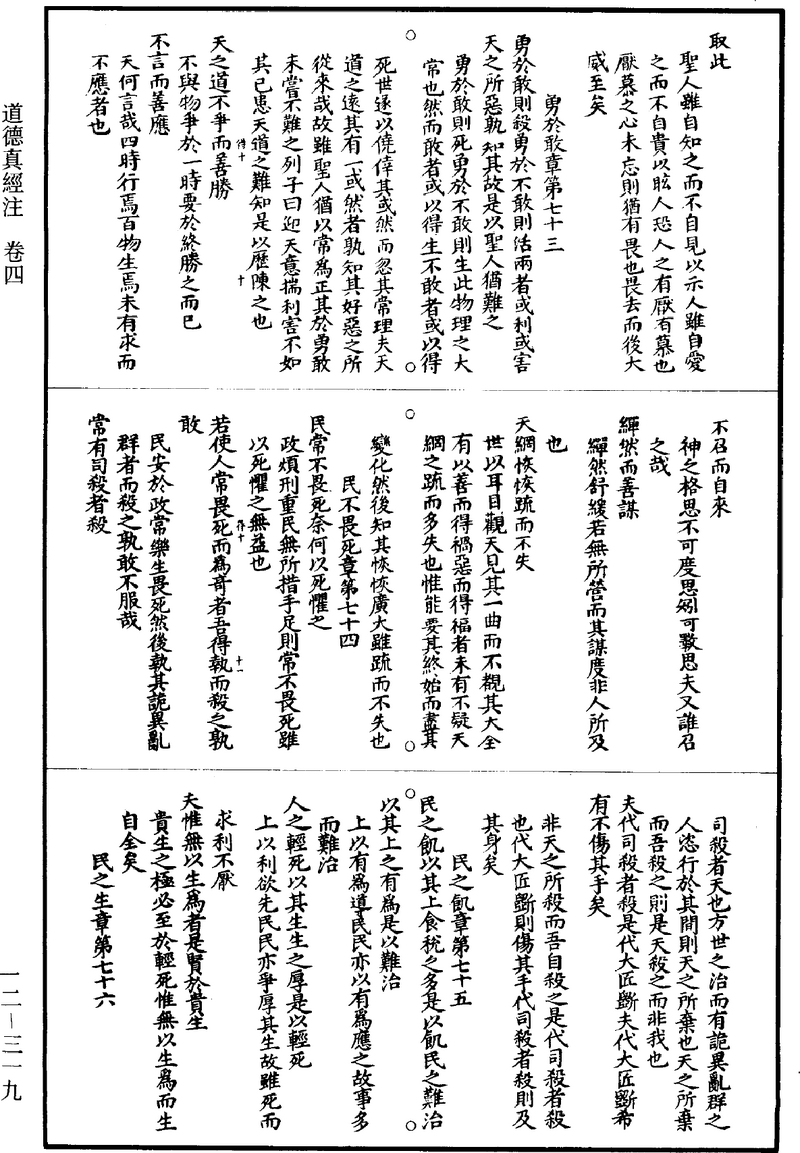 取此
聖人雖自知之而不自見以示人雖自愛
之而不自貴以眩人恐人之有厭有慕也
厭慕之心未忘則猶有畏也畏去而後大
威至矣
勇於敢章第七十三
勇於敢則殺勇於不敢則活兩者或利或害
天之所惡孰知其故是以聖人猶難之
勇於敢則死勇於不敢則生此物理之大
常也然而敢者或以得生不敢者或以得
死世遂以僥倖其或然而忽其常理夫天
道之遠其有一或然者孰知其好惡之所
從來哉故雖聖人猶以常爲正其於勇敢
未嘗不難之列子曰迎天意揣利害不如
其已患天道之難知是以歷陳之也
天之道不爭而善勝
不與物爭於一時要於終勝之而已
不言而善應
天何言哉四時行焉百物生焉未有求而
不應者也
不召而自來
神之格思不可度思矧可斁思夫又誰召
之哉
繟然而善謀
繟然舒緩若無所營而其謀度非人所及
也
天網恢恢疏而不失
世以耳目觀天見其一曲而不覩其大全
有以善而得禍惡而得福者未有不疑天
網之疏而多失也惟能要其終始而盡其
變化然後知其恢恢廣大雖疏而不失也
民不畏死章第七十四
民常不畏死奈何以死懼之
政煩刑重民無所措手足則常不畏死雖
以死懼之無益也
若使人常畏死而爲奇者吾得執而殺之孰
敢
民安於政常樂生畏死然後執其詭異亂
群者而殺之孰敢不服哉
常有司殺者殺
司殺者天也方世之治而有詭異亂群之
人恣行於其間則天之所棄也天之所棄
而吾殺之則是天殺之而非我也
夫代司殺者殺是代大匠斲夫代大匠斲希
有不傷其手矣
非天之所殺而吾自殺之是代司殺者殺
也代大匠斲則傷其手代司殺者殺則及
其身矣
民之飢章第七十五
民之飢以其上食稅之多是以飢民之難治
以其上之有爲是以難治
上以有爲導民民亦以有爲應之故事多
而難治
人之輕死以其生生之厚是以輕死
上以利欲先民民亦爭厚其生故雖死而
求利不厭
夫惟無以生爲者是賢於貴生
貴生之極必至於輕死惟無以生爲而生
自全矣
民之生章第七十六
道德真經注 卷四
一二－三一九